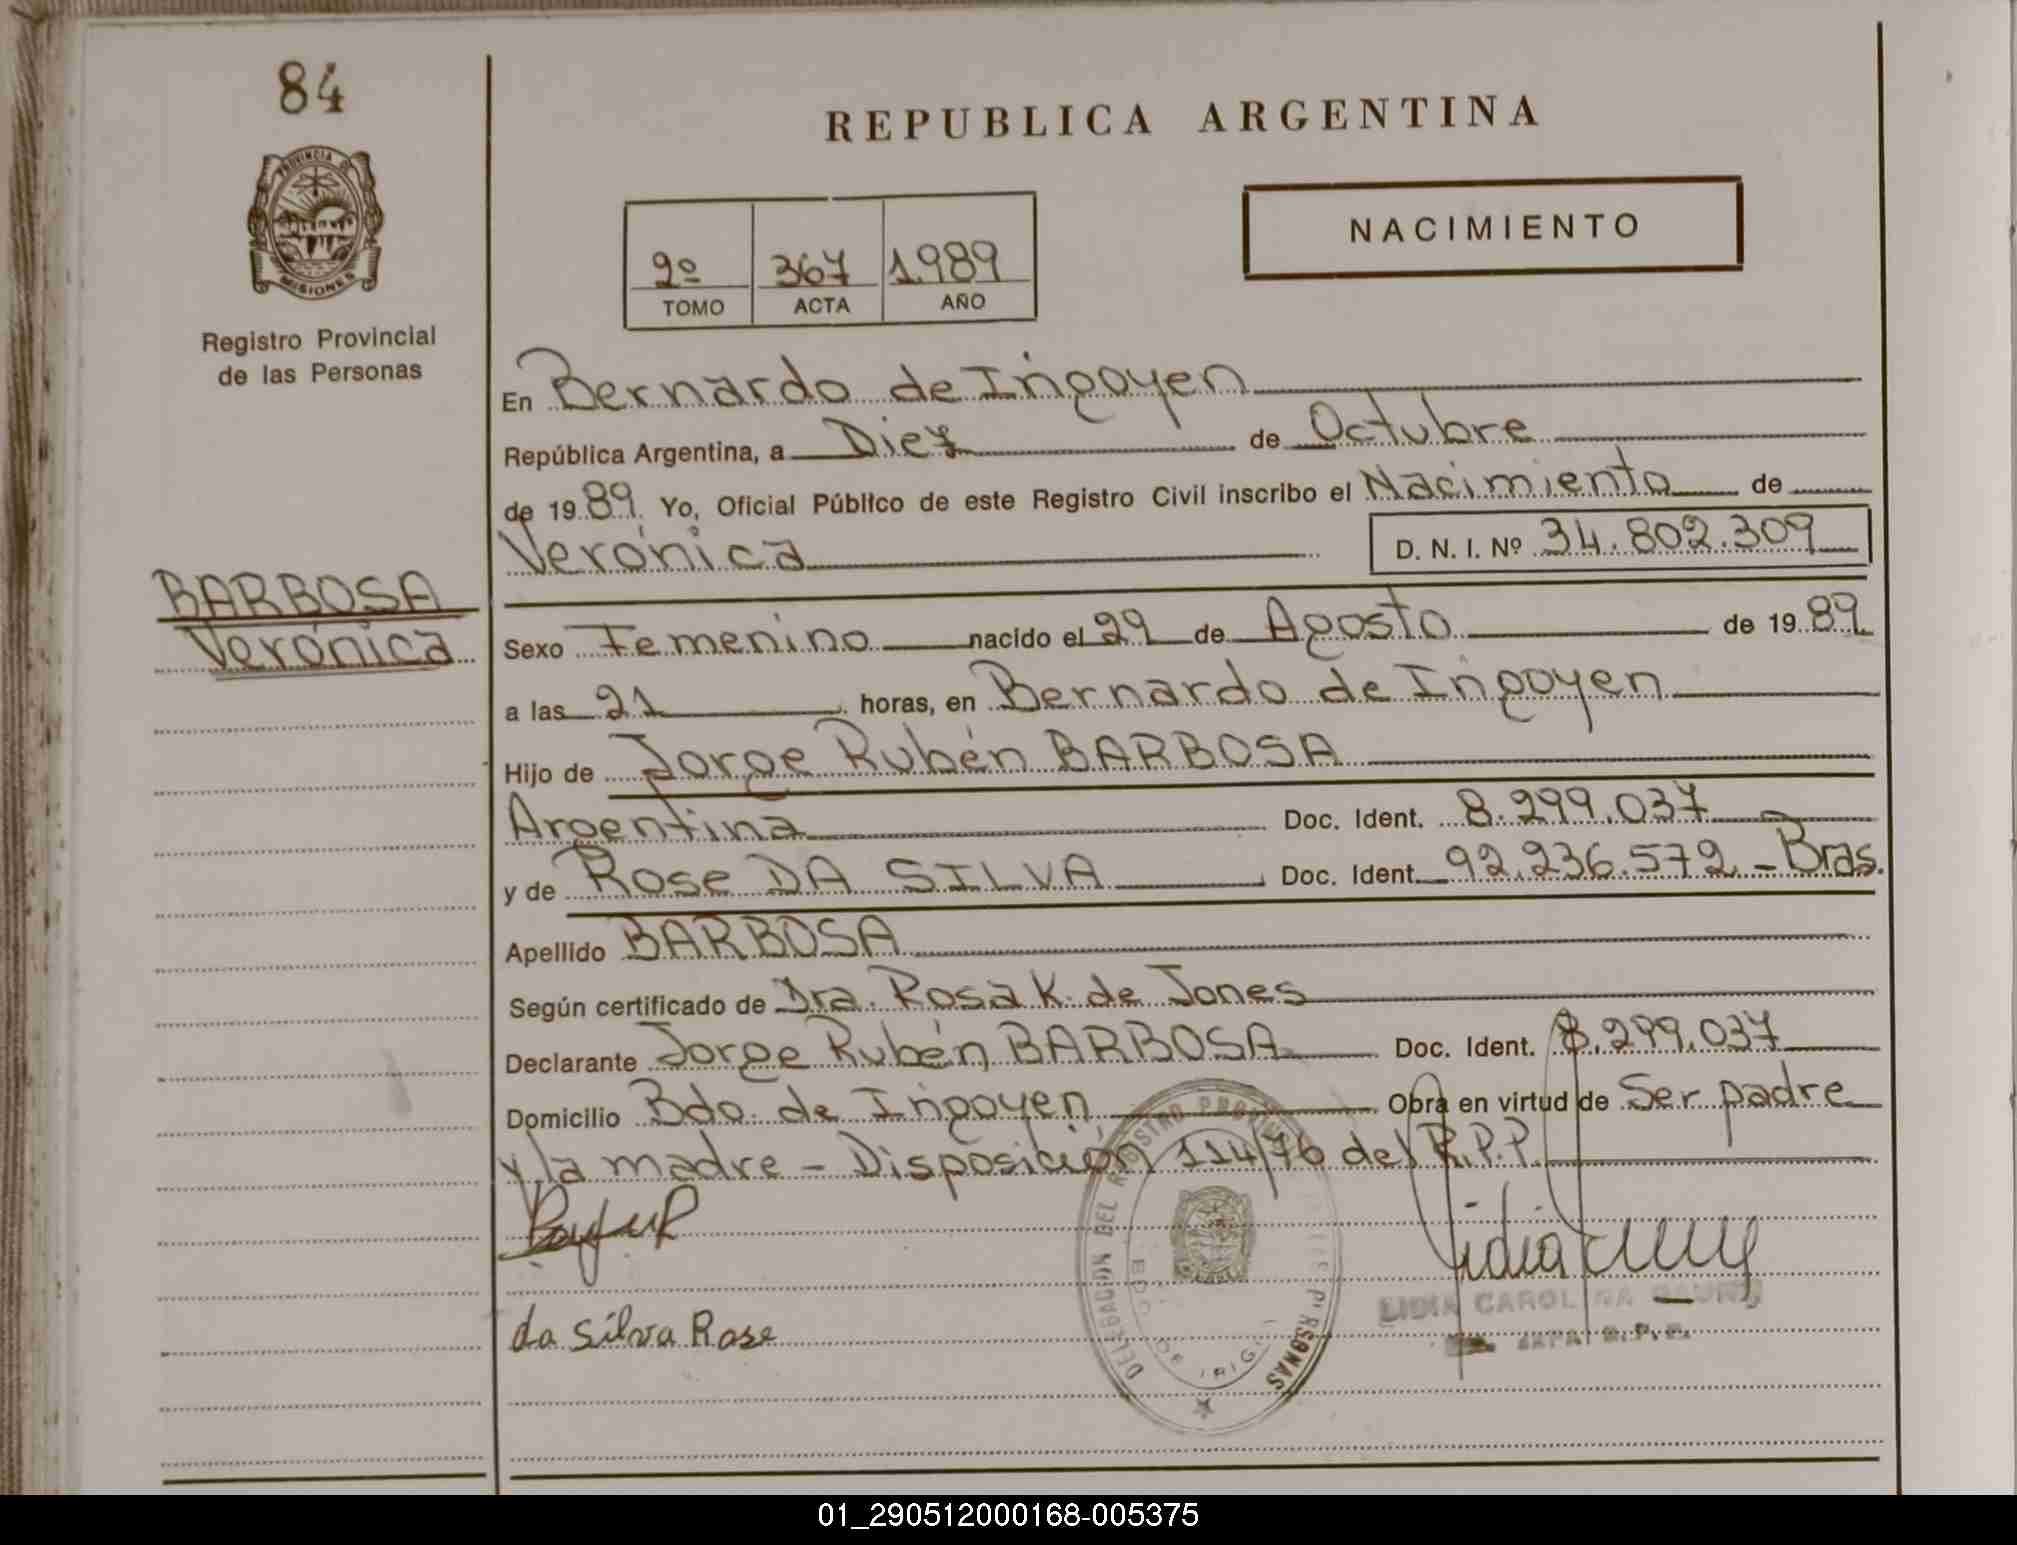 84
PROVINCIA DE
MISIONES
Registro Provincial
de las Personas
BARBOSA
Verónica
REPUBLICA ARGENTINA
NACIMIENTO
2º 367 1989
TOMO ACTA AÑO
En Bernardo de Irigoyen
República Argentina, a Diez de Octubre
de 1989 Yo, Oficial Público de este Registro Civil inscribo el Nacimiento de
Verónica D. N. I. Nº 34.802.309
Sexo Femenino nacido el 29 de Agosto de 1989
a las 21 horas, en Bernardo de Irigoyen
Hijo de Jorge Rubén BARBOSA
Argentina Doc. Ident. 8.299.037
y de Rose DA SILVA Doc. Ident. 92.236.572 - Bras.
Apellido BARBOSA
Según certificado de Dra. Rosa K. de Jones
Declarante Jorge Rubén BARBOSA Doc. Ident. 8.299.037
Domicilio Bdo. de Irigoyen Obra en virtud de Ser padre
y la madre - Disposición 114/76 del R.P.P.
DELEGACION DEL REGISTRO PERSONAS
BDO. DE IRIG.
LIDIA CAROLINA
R.P.P.
da Silva Rose
01_290512000168-005375